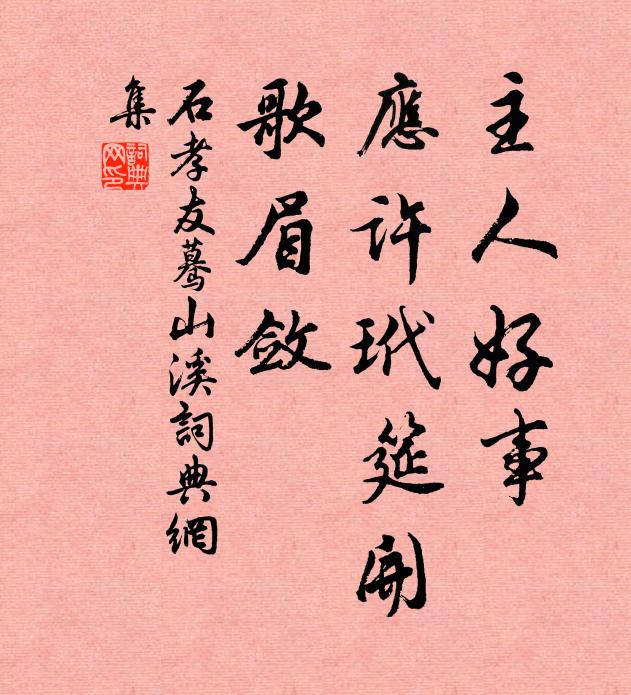 主人好事
應許玳筵開
歌眉斂
石孝友驀山溪詞典網
集
詞典
网印